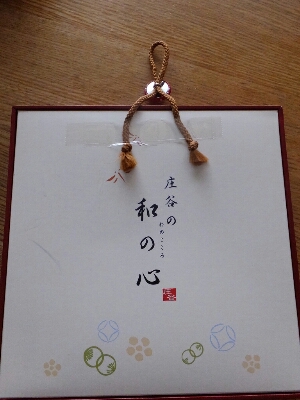 庄谷の
和の心
わのこころ
庄谷